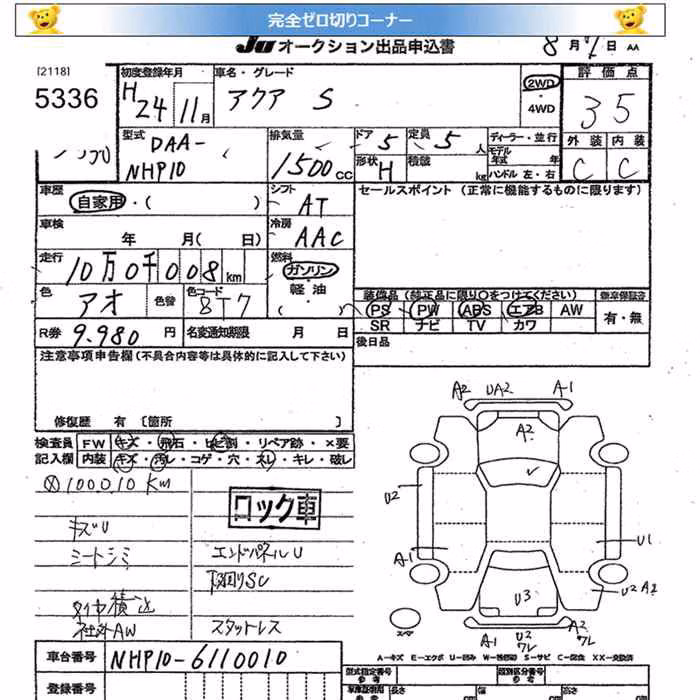 完全ゼロ切りコーナー
JU オークション出品申込書
8 月 日 AA
[2118]
5336
初度登録年月
H 24 年 11 月
車名・グレード
アクア S
2WD
・
4WD
評価点
35
外装 内装
C C
型式
DAA-
NHP10
排気量
1500 CC
ドア 5
定員 5 人
形状 H
積載 kg
ディーラー・並行
モデル年式 年
ハンドル 左・右
車歴
自家用・( )
シフト
AT
セールスポイント (正常に機能するものに限ります)
車検
年 月( 日)
冷房
AAC
走行
10万0千008 km
燃料
ガソリン
軽油
( )
色
アオ
色替
色コード
8T7
装備品(純正品に限り○をつけてください)
新車保証書
PS PW ABS エアB AW
有・無
SR ナビ TV カワ
R券 9.980 円
名変通知期限 月 日
後日品
注意事項申告欄(不具合内容等は具体的に記入して下さい)
修復歴 有 [箇所 ]
検査員
記入欄
FW キズ・飛石・ヒビ割・リペア跡・×要
内装 キズ・汚レ・コゲ・穴・スレ・キレ・破レ
100010 Km
キズU
シートシミ
ロック車
エンドパネルU
下回りSC
タイヤ積込
社外AW
スタットレス
A2 UA2 A-1
A2
U2
A-1
U1
U3
U2 A2
スペア
A-1 U2 ワレ A2 ワレ
A-キズ E-エクボ U-凹み W-補修跡 S-サビ C-腐食 XX-交換済
車台番号 NHP10-6110010
登録番号
型式指定番号
参考
類別区分番号
参考
長さ cm
幅 cm
高さ cm